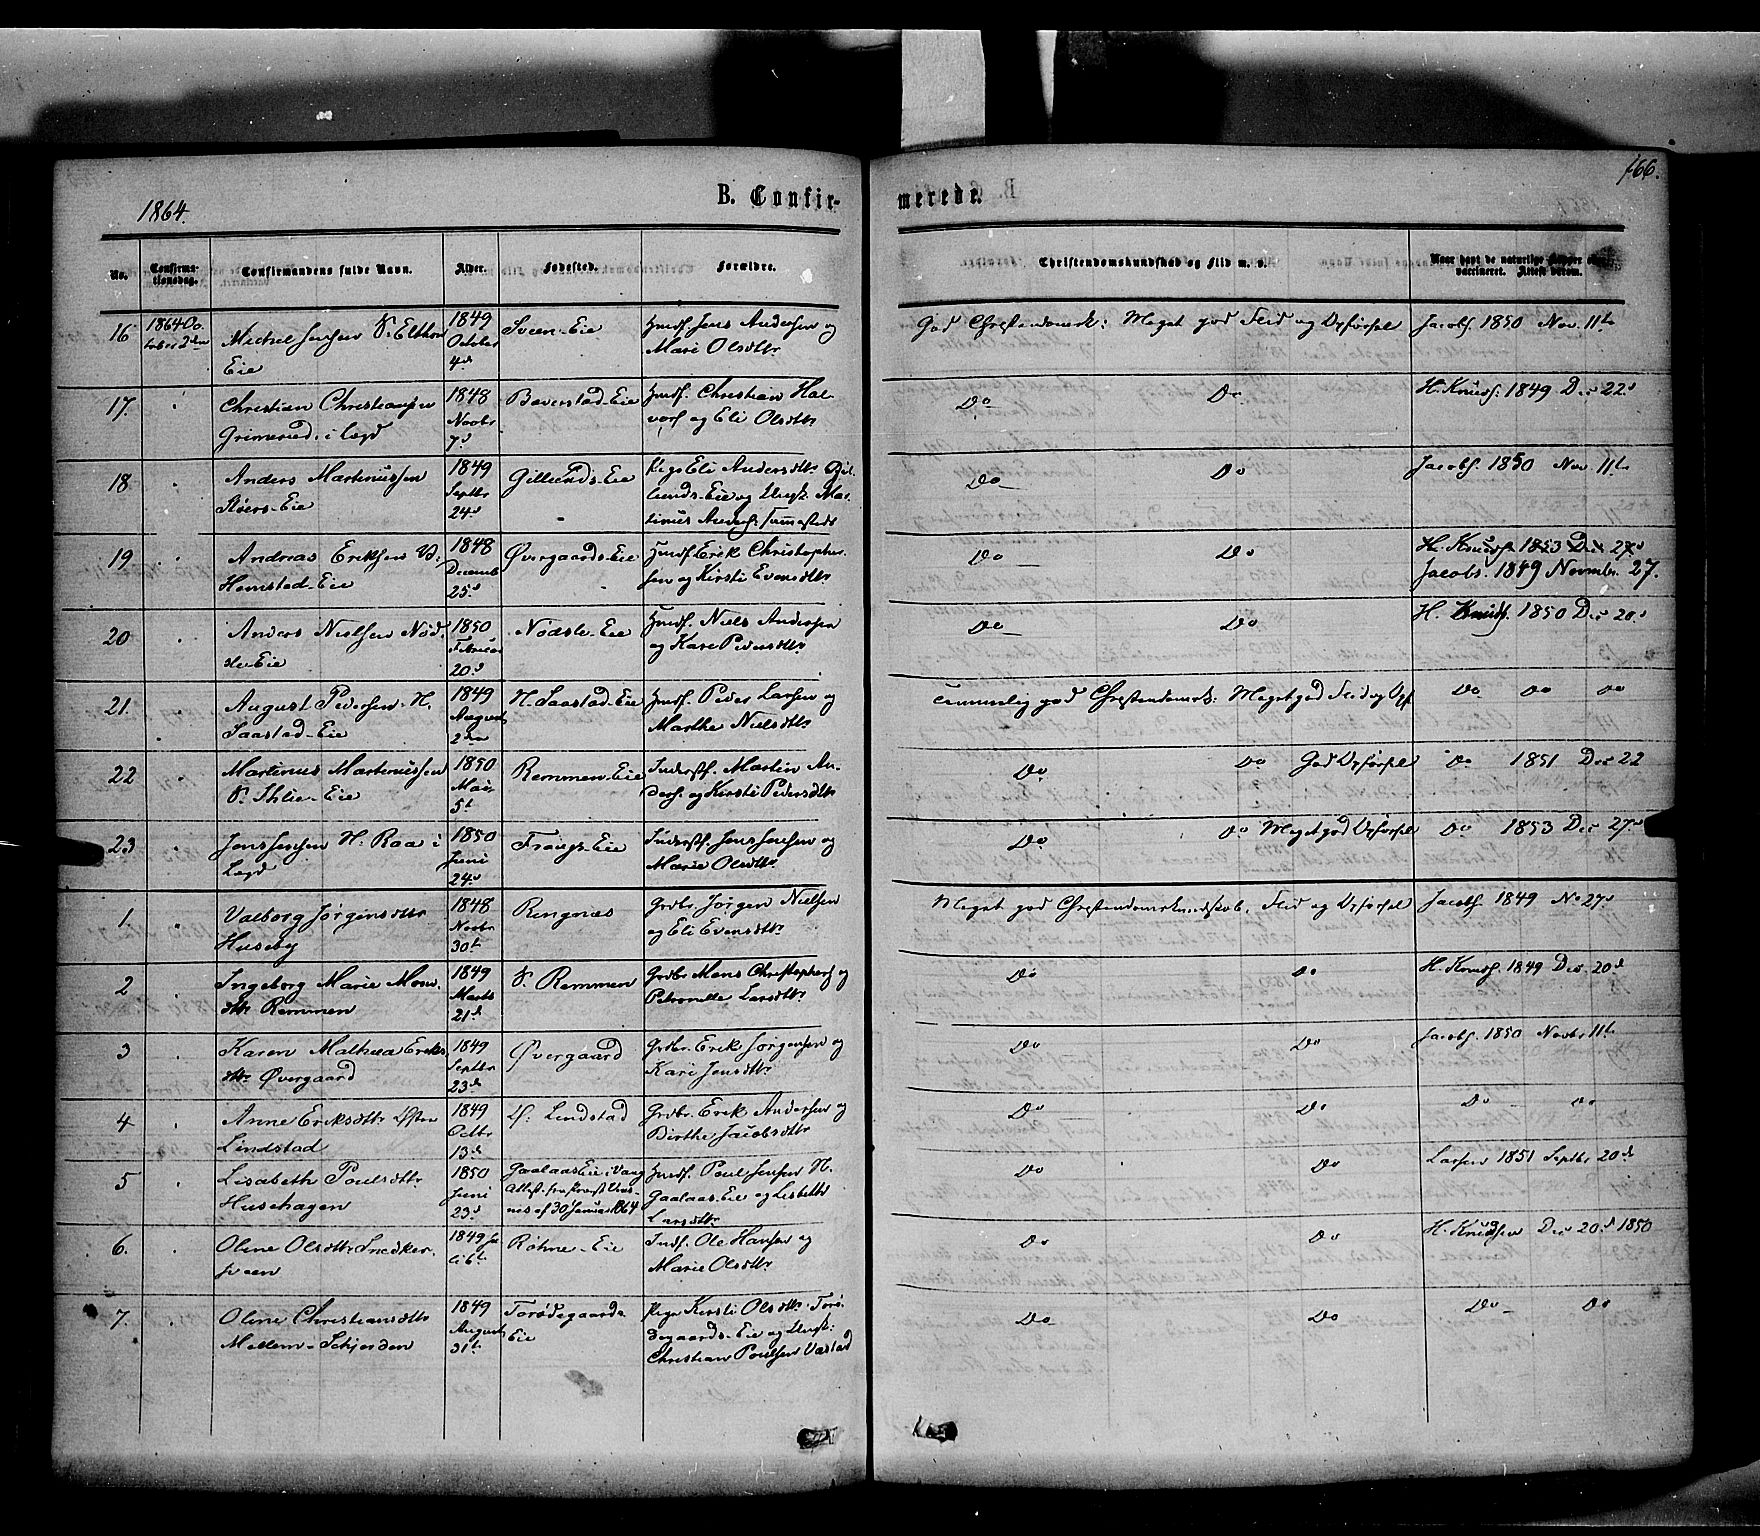 166.
1864.
B. Confirmerede.
No. Confirmationsdag. Confirmandens fulde Navn. Alder. Fødested. Forældre. Christendomskundskab og Flid m. v. Naar havt de naturlige Kopper eller vaccineret. Attest derom.
16 1864 October 2den Michel Jensen V. Elthon Eie 1849 October 4de Sveen-Eie Huusf. Jens Andersen og Mari Olsdttr God Christendomsk: Meget god Flid og Opførsel Jacobs. 1850 Nov. 11te
17. " Christian Christiansen Grimerud i Lægd 1848 Novbr 7d Baverstad-Eie Huusf. Christian Halvors. og Eli Olsdttr Do Do H. Knuds. 1849 Dec 22d
18 " Anders Martinussen Stoers-Eie 1849 Septbr 24d Gillunds-Eie Pige Eli Andersdttr Gillunds-Eie og Ungk. Martinus Anders. Tommestads Do Do Jacobs. 1850 Nov 11te
19 " Andreas Eriksen V. Hemstad-Eie 1848 Decemb 25d Øvergaards-Eie Huusf. Erik Christophersen og Kirsti Evensdttr Do Do H. Knuds. 1853 Dec 27d
Jacobs. 1849 Novmbr. 27.
20 " Anders Nielsen Nødsle-Eie 1850 Februar 20d Nødsle-Eie Huusf. Niels Andersen og Kari Pedersdttr Do Do H. Knuds. 1850 Dec 20d
21. " August Pedersen N. Saastad-Eie 1849 August 2den N. Saastad-Eie Huusf. Peder Larsen og Marthe Nielsdttr Temmelig god Christendomsk: Meget god Flid og Opf. Do Do Do
22 " Martinus Martinussen V. Ihlie-Eie 1850 Mai 5t Remmen-Eie Inderstf. Martin Anders. og Kirsti Pedersdttr Do Do God Opførsel Do 1851 Dec 22
23 " Jens Jensen N. Raa i Lægd 1850 Juni 24d Frongs-Eie Inderstf. Jens Jensen og Marie Olsdttr Do Do Meget god Opførsel Do 1853 Dec 27d
1 " Valborg Jørgensdttr Huseby 1848 Novbr 30t Ringnæs Grdbr. Jørgen Nielsen og Eli Evensdttr Meget god Christendomskundskab, Flid og Opførsel Jacobs. 1849 No 27d
2 " Ingeborg Marie Monsdttr Remmen 1849 Marts 21d V. Remmen Grdbr Mons Christophers og Petronelle Larsdttr Do Do H. Knuds. 1849 Dec. 20d
3 " Karen Mathea Eriksdttr Øvergaard 1849 Septbr 23d Øvergaard Grdbr. Erik Jørgensen og Kari Jensdttr Do Do Jacobs. 1850 Novbr 11te
4 " Anne Eriksdttr Østre Lindstad 1849 Octbr 13d Ø. Lindstad Grdbr. Erik Andersen og Birthe Jacobsdttr Do Do Do Do
5 " Lisabeth Poulsdttr Husehagen 1850 Juni 23d Gaalaas Eie i Vang Attest fra Provst Vinsnes af 30 Januar 1864 Huusf. Poul Jensen N. Gaalaas-Eie og Lisbeth Larsdttr Do Do Larsen 1851 Septbr 20d
6. " Oline Olsdttr Snedkersveen 1849 Juli 6t Røhne-Eie Indf. Ole Hansen og Marie Olsdttr Do Do H. Knudsen Dec 20d 1850
7. " Oline Christiansdttr Mellem-Schjerden 1849 August 31t Torødegaards Eie Pige Kirsti Olsdttr Torødegaards-Eie og Ungk. Christian Poulsen Vastad Do Do Do Do